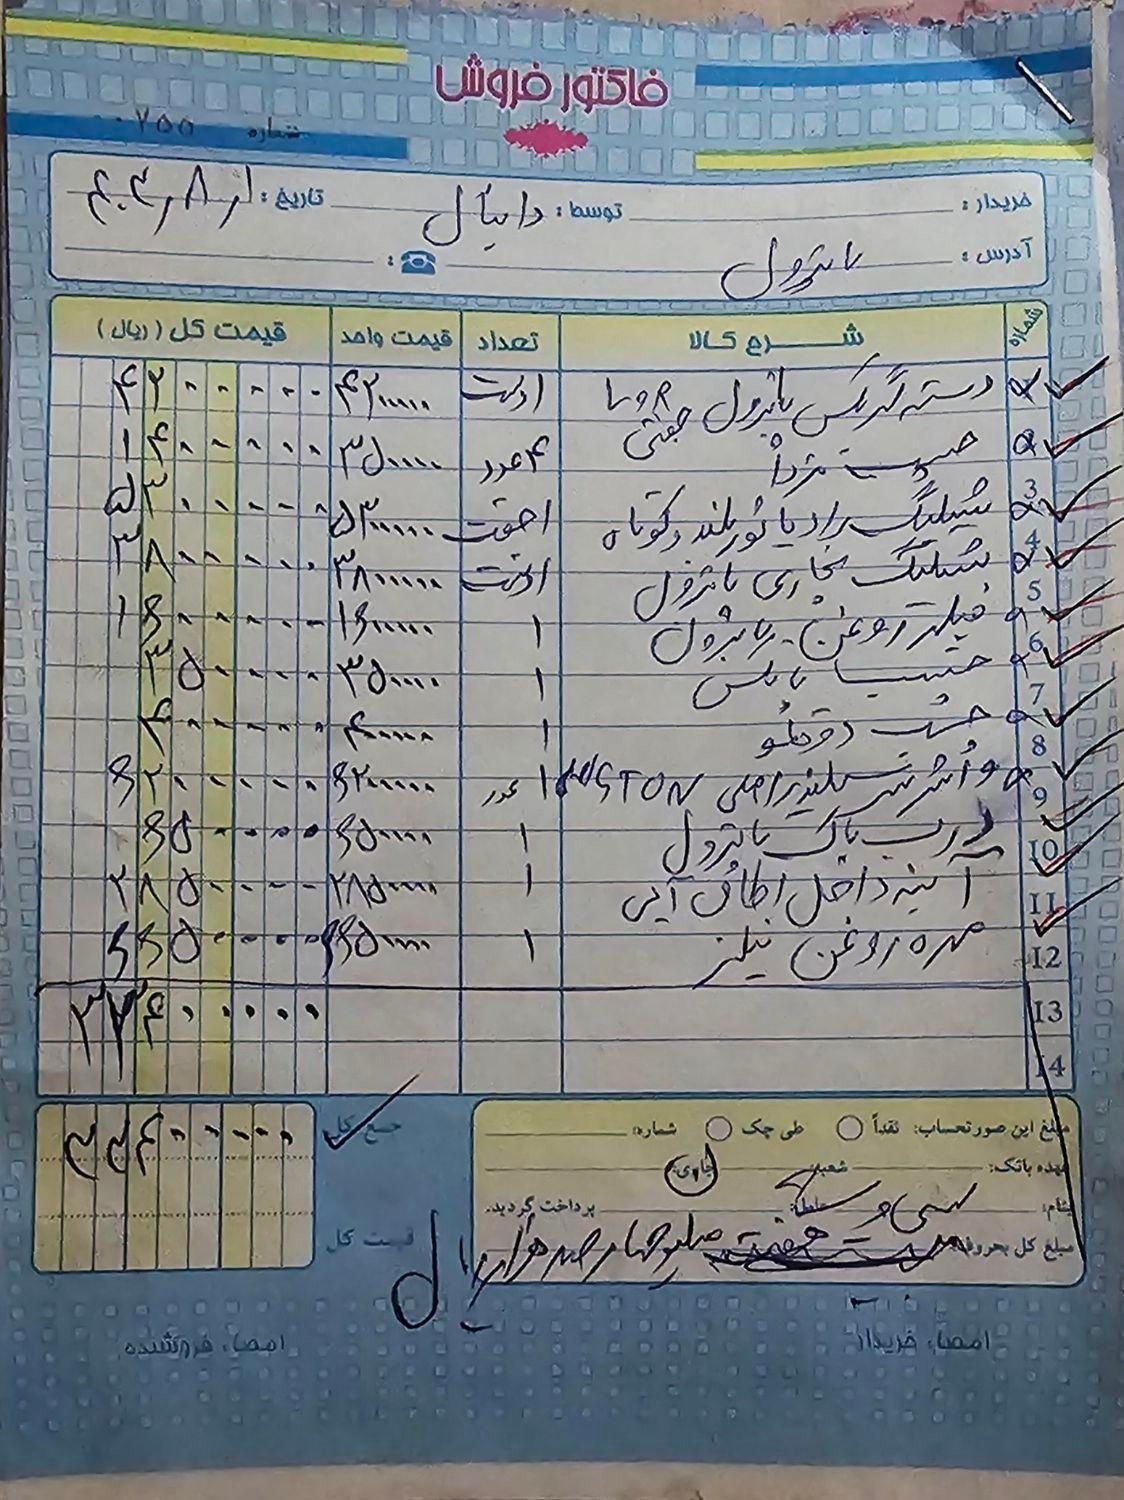 فاکتور فروش
شماره ۷۵۵۰
خریدار: توسط: دانیال تاریخ: ۱ر۸ر۴۰۴
آدرس: پاترول
شماره شرح کالا تعداد قیمت واحد قیمت کل (ریال)
دسته گریکس پاترول جفتی ۱دست ۴۲۰۰۰۰۰ ۴۲۰۰۰۰۰
چسب مزدا ۴عدد ۳۵۰۰۰۰ ۱۴۰۰۰۰۰
3 شیلنگ رادیاتور بلند و کوتاه ۱جفت ۵۳۰۰۰۰۰ ۵۳۰۰۰۰۰
4 شیلنگ بخاری پاترول ۱دست ۳۸۰۰۰۰۰ ۳۸۰۰۰۰۰
5 فیلتر روغن پاترول ۱ ۱۶۰۰۰۰۰ ۱۶۰۰۰۰۰
6 چسب ۱ ۳۵۰۰۰۰ ۳۵۰۰۰۰
7 چسب دوقلو ۱ ۴۰۰۰۰۰ ۴۰۰۰۰۰
8 واشر سرسیلندر اصلی STON ۱ عدد ۶۲۰۰۰۰۰ ۶۲۰۰۰۰۰
9 درب باک پاترول ۱ ۶۵۰۰۰۰ ۶۵۰۰۰۰
10 آینه داخل اطاق آبی ۱ ۲۸۵۰۰۰۰ ۲۸۵۰۰۰۰
11 مهره روغن ۱ ۶۶۵۰۰۰۰ ۶۶۵۰۰۰۰
12
13 ۳۳۴۰۰۰۰۰
14
جمع کل ۳۳۴۰۰۰۰۰
قیمت کل
مبلغ این صورتحساب: نقداً طی چک شماره:
عهده بانک: شعبه: جاری:
بنام: پرداخت گردید.
مبلغ کل بحروف: سی و سه میلیون چهارصد هزار ریال
امضاء خریدار امضاء فروشنده